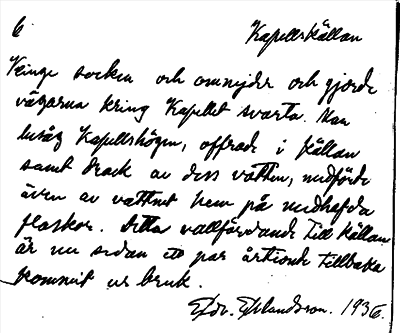 6
Kapellskällan
Kinge socken och omnejder och gjorde
vägarna kring Kapellet svarta. Man
besåg Kapellshögen, offrade i källan
samt drack av dess vatten, medförde
även av vattnet hem på medhafda
flaskor. Detta vallfärdande till källan
är nu sedan ett par årtionde tillbaka
kommit ur bruk.
1936.